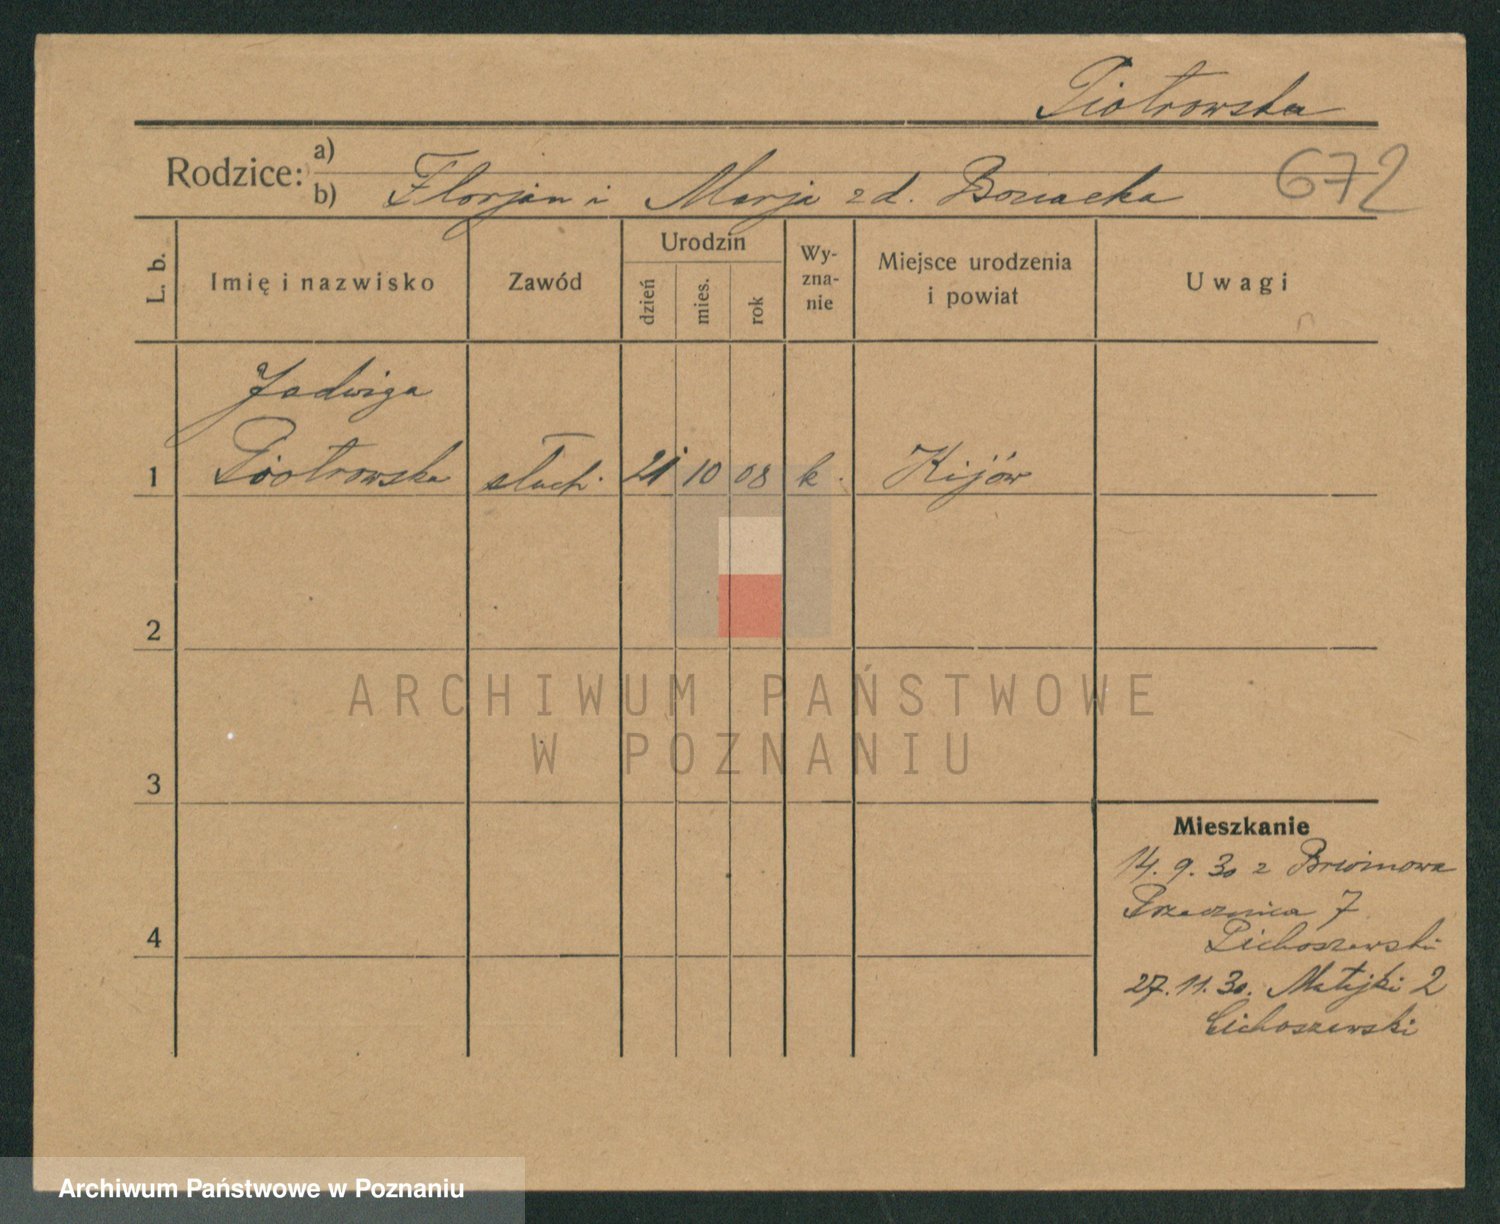 Piotrowska
Rodzice: a)
b) Florjan i Marja zd.
672
L. b.
Imię i nazwisko
Zawód
Urodzin
dzień
mies.
rok
Wy-
zna-
nie
Miejsce urodzenia
i powiat
Uwagi
Jadwiga
1 Piotrowska słuch. 21 10 08 k. Kijów
2
3
4
Mieszkanie
14. 9. 30 z Brwinowa
Przecznica 7
Cichoszewski
27. 11. 30. Matejki 2
Cichoszewski
ARCHIWUM PAŃSTWOWE
W POZNANIU
Archiwum Państwowe w Poznaniu